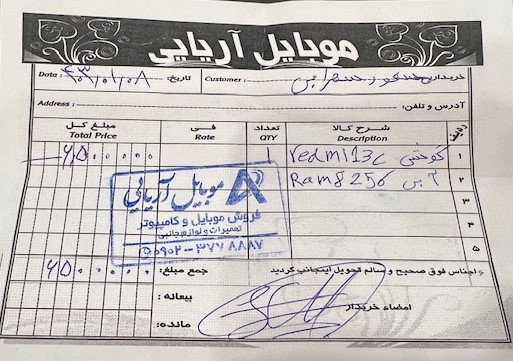 موبایل آریایی
Data : ۴۰۳/۰۱/۰۸ تاریخ: Customer : خریدار:
Address : آدرس و تلفن:
ردیف شرح کالا Description تعداد QTY فی Rate مبلغ کل Total Price
۱ گوشی redmi 13c 1 ۶۵۰۰۰۰۰
۲ آبی Ram 8 256
۳
۴
۵
موبایل آریایی
فروش موبایل و کامپیوتر
تعمیرات و لوازم جانبی
۰۹۰۲-۳۷۷۸۸۸۷
اجناس فوق صحیح و سالم تحویل اینجانب گردید جمع مبلغ: ۶۵۰۰۰۰۰
امضاء خریدار بیعانه:
مانده: